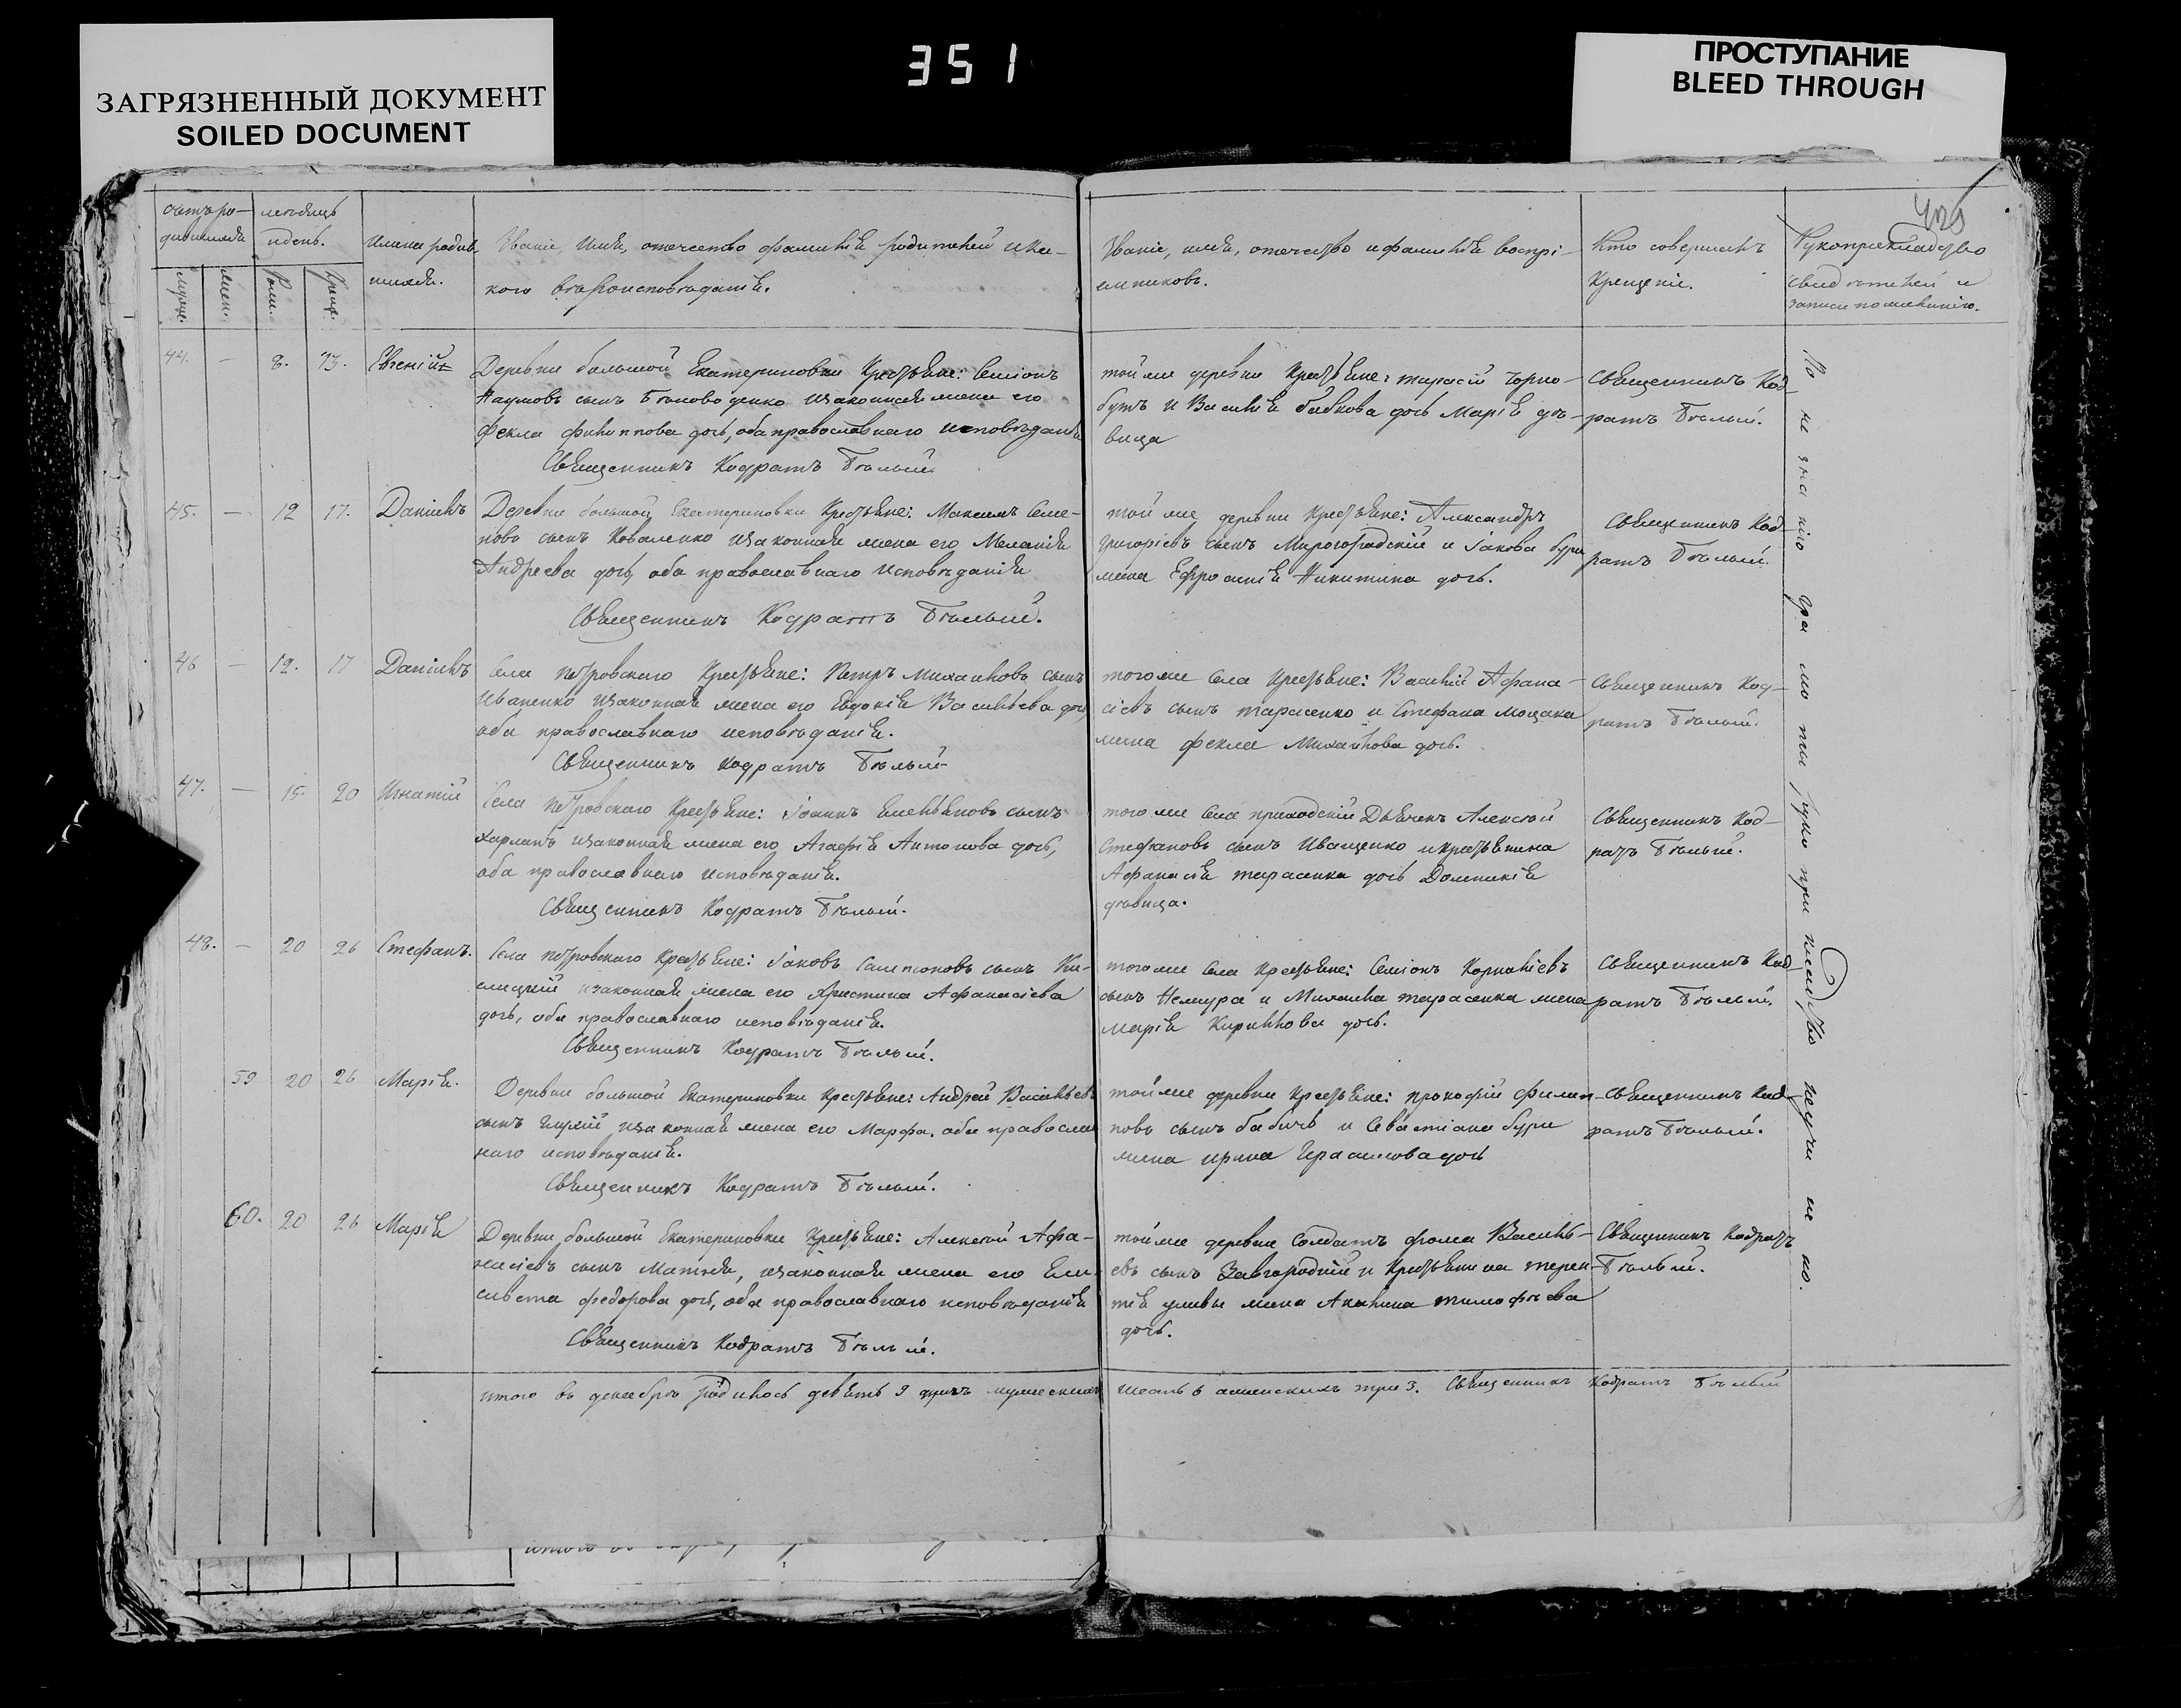 351
ЗАГРЯЗНЕННЫЙ ДОКУМЕНТ
SOILED DOCUMENT
ПРОСТУПАНИЕ
BLEED THROUGH
счетъ ро-
дившихся
мѣсяцъ
и день.
Имена родив-
шихся.
Званіе, Имя, отечество фамилія родителей и ка-
кого вѣроисповѣданія.
Званіе, имя, отечество и фамилія воспрі-
емниковъ.
Кто совершалъ
Крещеніе.
Рукоприкладство
свидѣтелей
записи по желанію.
муже.
жен.
Рожд.
Крещ.
44. — 8. 13. Евгеній
Деревни большой Екатериновки Крестьяне: Семіонъ
Наумовъ сынъ Бѣловоденко и законная жена его
Фекла Филиппова дочь, оба православнаго исповѣданія
Священникъ Кодратъ Бѣлый
той же деревни Крестьяне: тарасій чорно-
бутъ и Василія бабкова дочь Марія дѣ-
вица
Священникъ Код-
ратъ Бѣлый.
45. — 12 17. Даніилъ
Деревни большой Екатериновки Крестьяне: Максимъ Семе-
новъ сынъ Коваленко и законная жена его Меланія
Андреева дочь, оба православнаго исповѣданія
Священникъ Кодратъ Бѣлый.
той же деревни Крестьяне: Александръ
григоріевъ сынъ Мирогородскій и Іакова бури
жена Ефросинія Никитина дочь.
Священникъ Код-
ратъ Бѣлый.
46 — 12. 17 Даніилъ
Села петровскаго Крестьяне: Петръ Михайловъ сынъ
Иваненко и законная жена его Евдокія Васильева дочь
оба православнаго исповѣданія.
Священникъ Кодратъ Бѣлый
того же села Крестьяне: Василій Афана-
сіевъ сынъ тарасенко и Стефана мощака
жена фекла Михайлова дочь.
Священникъ Код-
ратъ Бѣлый.
47. — 15. 20 Игнатій
Села Петровскаго Крестьяне: Іоаннъ Емельяновъ сынъ
харланъ и законная жена его Агафія Антонова дочь,
оба православнаго исповѣданія.
Священникъ Кодратъ Бѣлый.
того же села приходскій Дьячекъ Алексѣй
Стефановъ сынъ Иващенко и крестьянина
Афанасія тарасенка дочь Домникія
дѣвица.
Священникъ Код-
ратъ Бѣлый.
48. — 20 26 Стефанъ.
Села петровскаго Крестьяне: Іаковъ Сампсоновъ сынъ
и законная жена его Христина Афанасіева
дочь, оба православнаго исповѣданія.
Священникъ Кодратъ Бѣлый.
того же села Крестьяне: Семіонъ Корниліевъ
сынъ Немура и Михаила тарасенка жена
марія Кирилова дочь.
Священникъ Код-
ратъ Бѣлый.
59 20 26 Марія.
Деревни большой Екатериновки Крестьяне: Андрей Васильевъ
сынъ и законная жена его Марфа, оба православ
наго исповѣданія.
Священникъ Кодратъ Бѣлый.
той же деревни Крестьяне: прокофій филип-
повъ сынъ бабичъ и Севастіана бури
жена ирина Герасимова дочь
Священникъ Код-
ратъ Бѣлый.
60. 20 26 Марія
Деревни большой Екатериновки Крестьяне: Алексѣй Афа-
насіевъ сынъ Матяя, и законная жена его Ели-
савета федорова дочь, оба православнаго исповѣданія
Священникъ Кодратъ Бѣлый.
той же деревни Солдатъ фома Василь-
евъ сынъ Завгородній и Крестьянина терен-
тія жена Акилина тимофѣева
дочь.
Священникъ Кодратъ
Бѣлый.
итого въ декабрѣ родилось девять 9 душъ мужескихъ
шесть 6 аженскихъ три 3. Священникъ Кодратъ Бѣлый
По не зна нію гра мо ты руко при клад ство